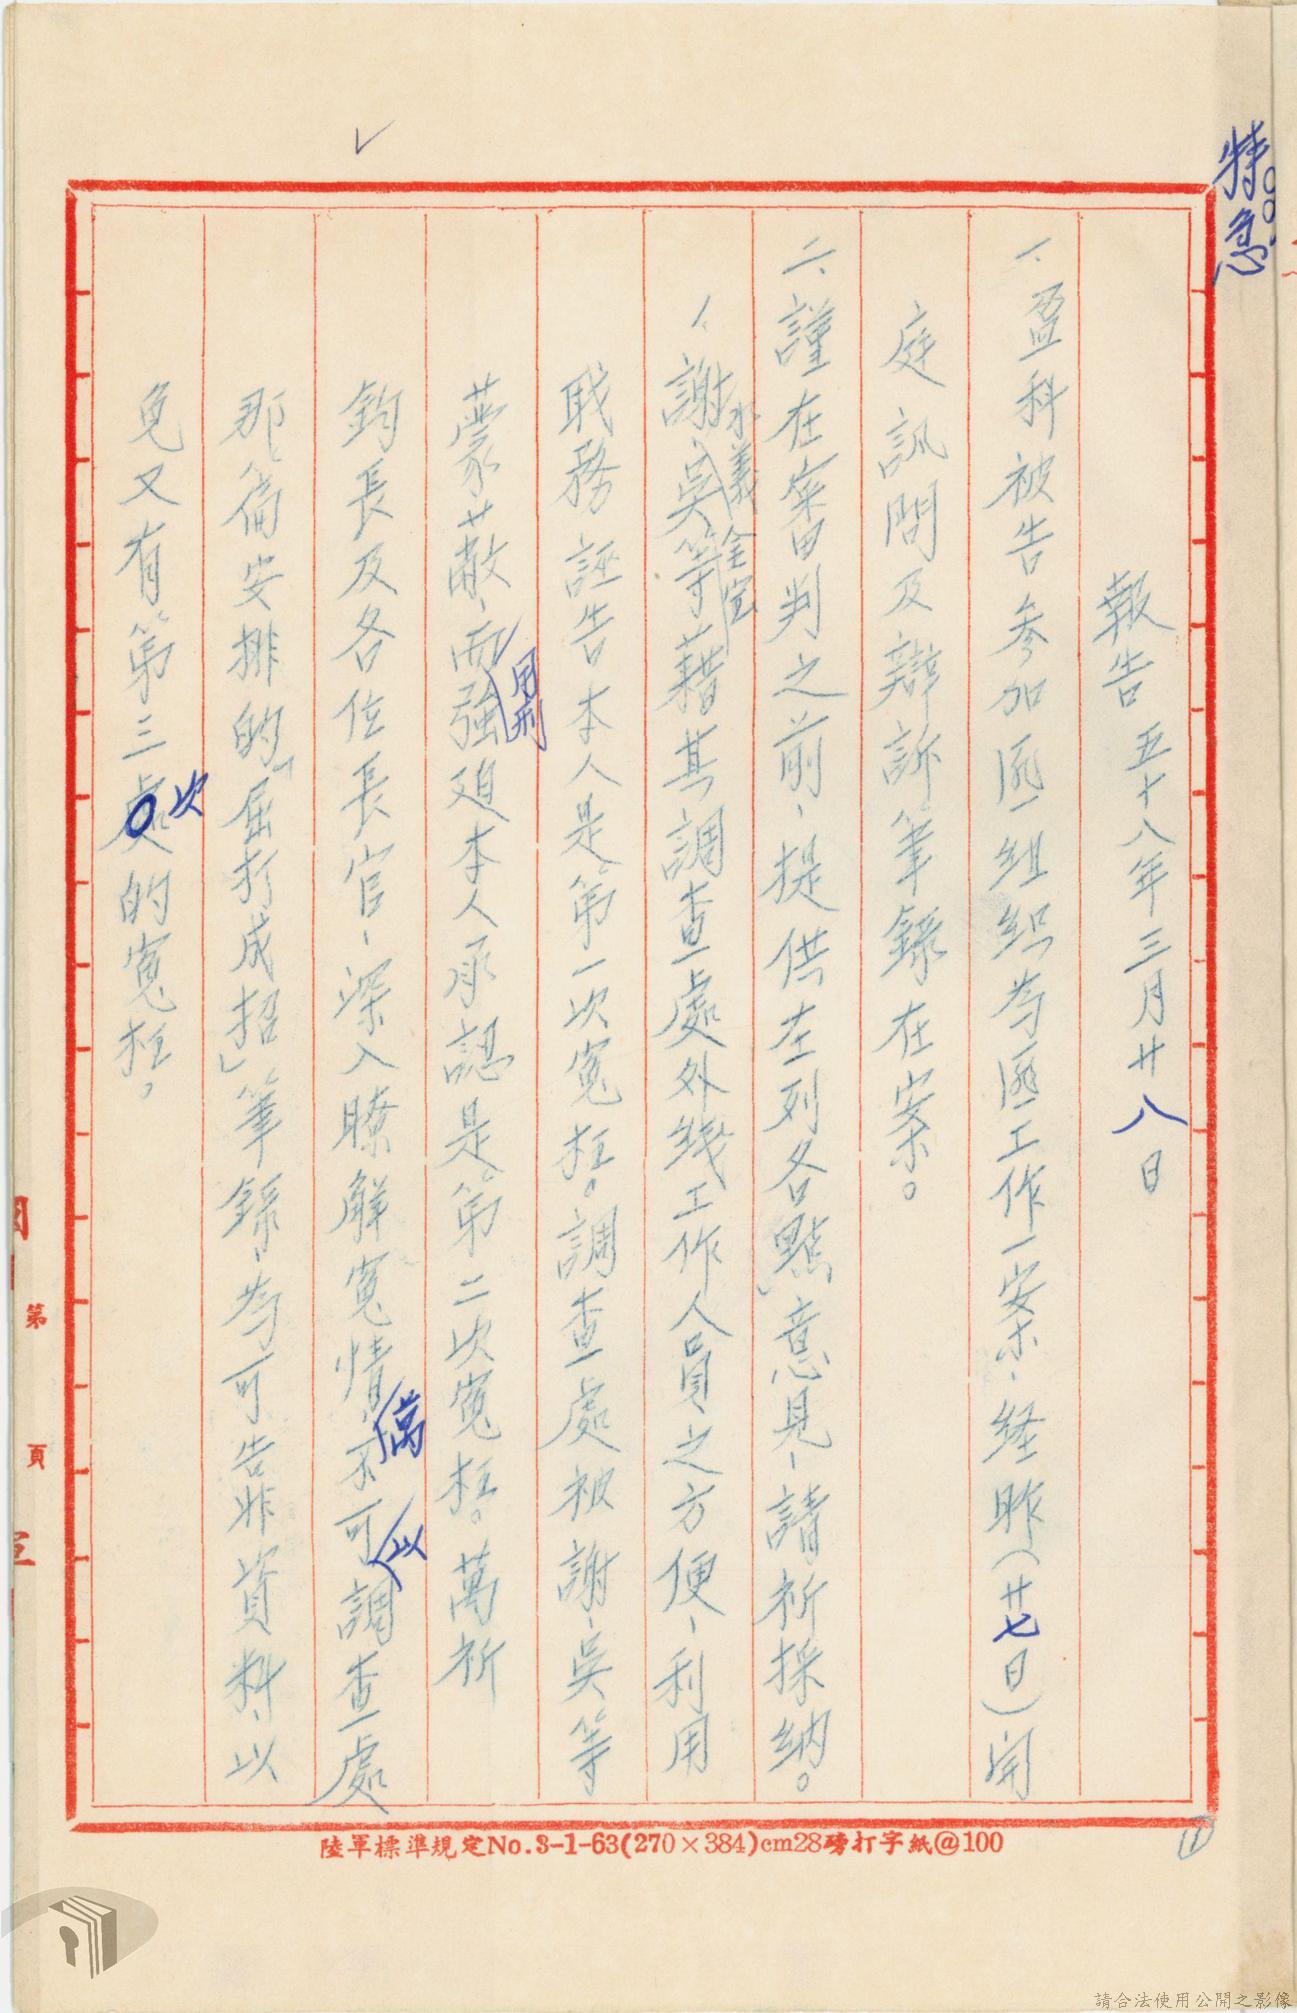 特急
報告 五十八年三月廿八日
一、盈科被告參加匪組織為匪工作一案、經昨(廿七日)開
庭訊問及辯訴筆錄在案。
二、謹在審判之前、提供左列各點意見、請祈採納。
1、謝、吳等藉其調查處外线工作人員之方便、利用
永義
金宝
戝務誣告本人是第一次寃枉。調查處被謝、吳等
蒙蔽、而強廹本人承認是第二次寃枉。萬祈
用刑
鈞長及各位長官、深入瞭解寃情、不可調查處
萬
以
那篇安排的「屈打成招」筆錄、為可告非資料、以
免又有第三處的寃枉。
次
第 頁
陸軍標準規定No.3-1-63(270×384)cm28磅打字紙@100
1
請合法使用公開之影像